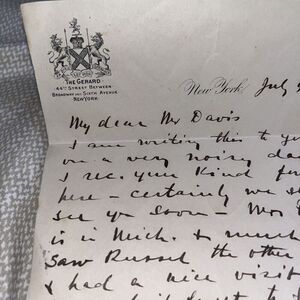 THE GERARD
44TH STREET BETWEEN
BROADWAY AND SIXTH AVENUE
NEW YORK
New York, July
My dear Mr Davis
I am writing this to
on a very noisy da
I rec. your kind
here - certainly we
see you soon -
is in Mich. & much
Saw Russel the other
& had a nice visit